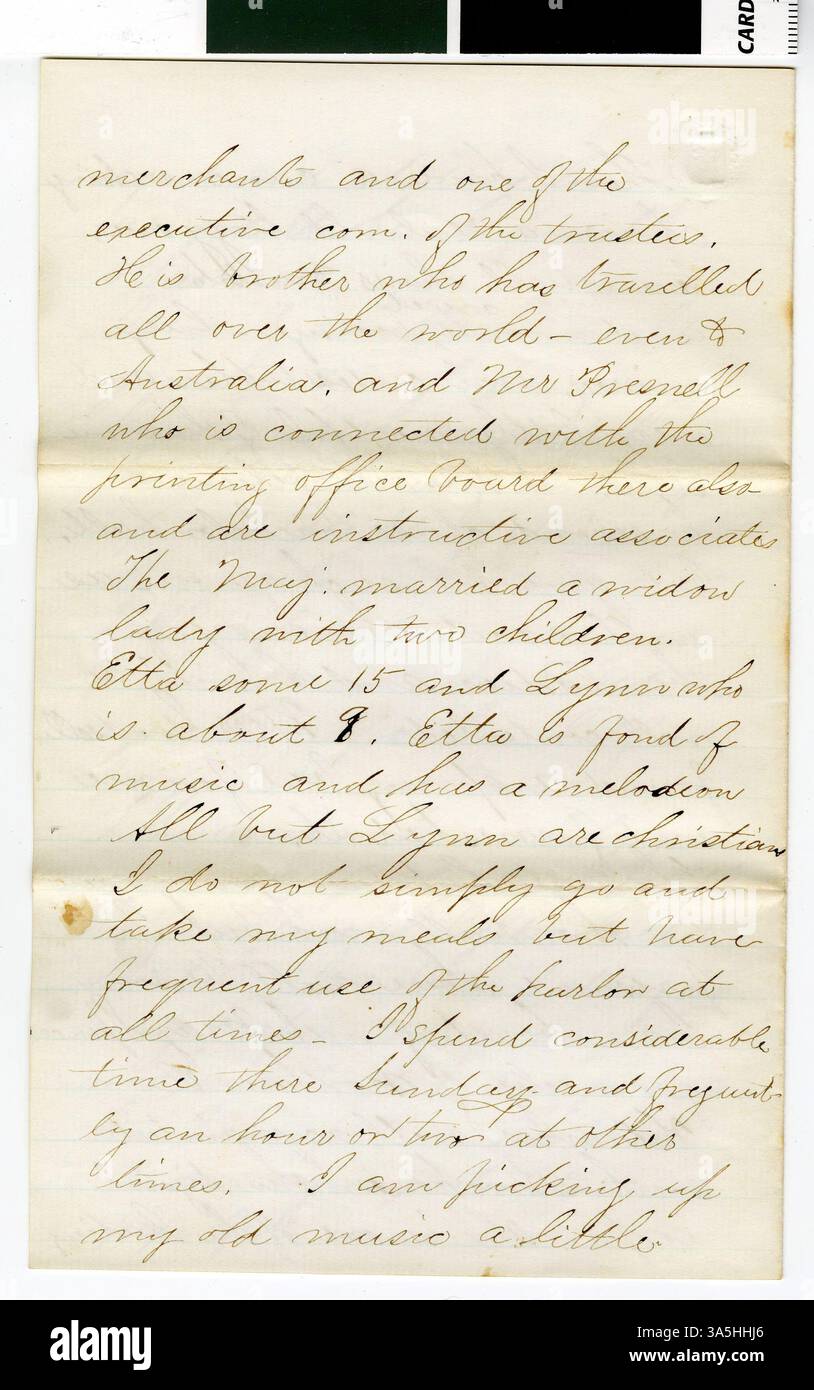 CARD
merchants and one of the
executive com. of the trustees.
He is brother who has travelled
all over the world - even to
Australia. and Mr Presnell
who is connected with the
printing office board there also
and are instructive associates
The Maj. married a widow
lady with two children.
Etta some 15 and Lynn who
is about 9. Etta is fond of
music and has a melodeon
All but Lynn are christians
I do not simply go and
take my meals but have
frequent use of the parlor at
all times - I spend considerable
time there Sunday and frequent-
ly an hour or two at other
times. I am picking up
my old music a little
alamy
Image ID: 3A5HHJ6
www.alamy.com